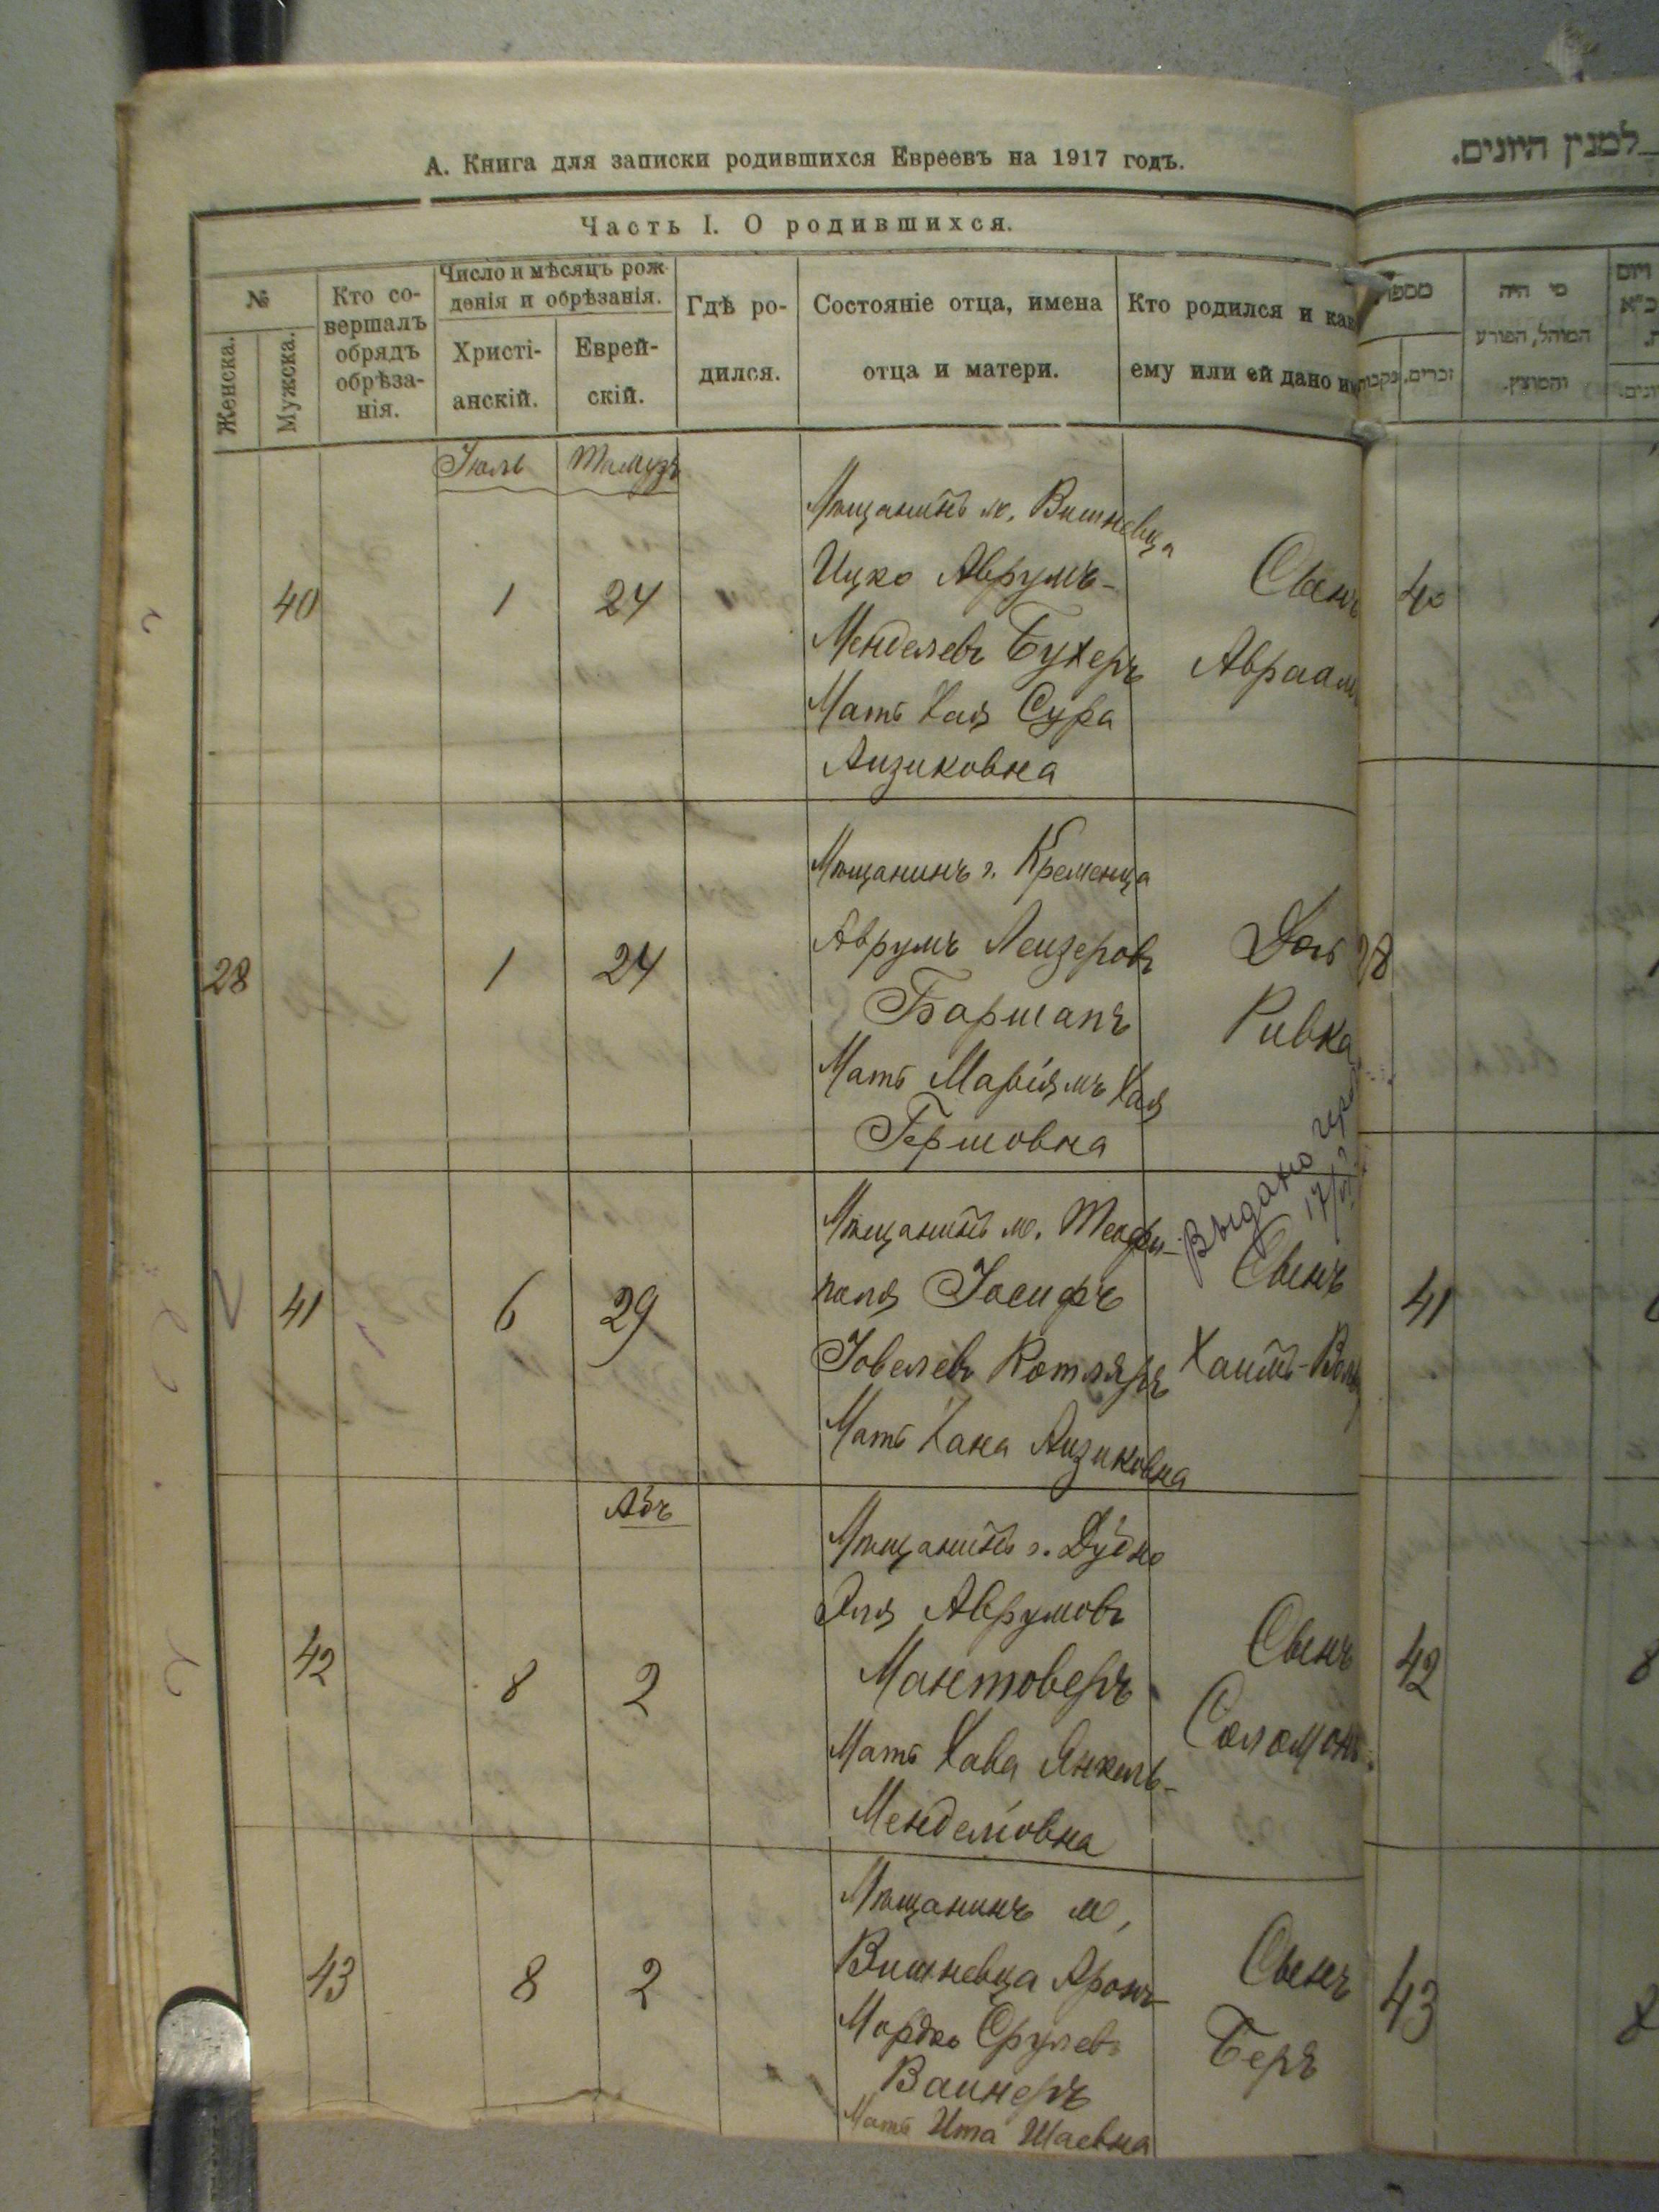 А. Книга для записки родившихся Евреевъ на 1917 годъ.
למנין היונים.
Часть I. О родившихся.
№
Женска.
Мужска.
Кто со-
вершалъ
обрядъ
обрѣза-
нія.
Число и мѣсяцъ рож-
денія и обрѣзанія.
Христі-
анскій.
Еврей-
скій.
Гдѣ ро-
дился.
Состояніе отца, имена
отца и матери.
Кто родился и как
ему или ей дано им
מי היה
המוהל, הפורע
והמוצץ.
זכרים.
Іюль
Тамузъ
40
1
24
Мѣщанинъ м. Вишневца
Ицко Аврумъ-
Менделевъ Бухеръ
Мать Хая Сура
Аизиковна
Сынъ
Авраамъ
40
28
1
24
Мѣщанинъ г. Кременца
Аврумъ Лейзеровъ
Боршапъ
Мать Маріямъ Хая
Гершовна
Дочь
Ривка
28
Выдано
17/
41
6
29
Мѣщанинъ м. Теофи-
поля Іосифъ
Іовелевъ Котляръ
Мать Хана Аизиковна
Сынъ
Хаимъ-
41
Абъ
42
8
2
Мѣщанинъ г. Дубно
Эля Аврумовъ
Мантоверъ
Мать Хава Янкель-
Менделіовна
Сынъ
Соломонъ.
42
8
43
8
2
Мѣщанинъ м.
Вишневца Аронъ-
Мордко Срулевъ
Ваинеръ
Мать Ита Шаевна
Сынъ
Беръ
43
8